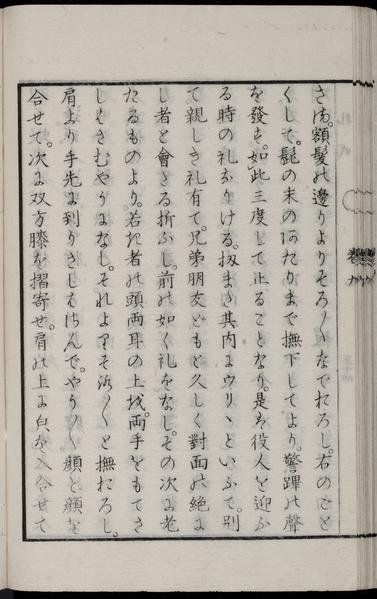 さす。額髪の邊りよりそろ〳〵なでおろし。右のごと
くして。髭の末のあたりまで撫下してより。警蹕の聲
を發す。如此三度して止ることなり。是も役人を迎ふ
る時の礼なりける。扨また其内にウリヽといふて。別
て親しき礼有て。兄弟朋友どもと久しく對面の絶に
し者と會ざる折ふし。前の如く礼をなし。その次に老
たるものより。若き者の頭両耳の上を。両手をもてさ
しはさむやうになし。それよりそろ〳〵と撫おろし。
肩より手先に到りさしはさんで。やう〳〵顔と顔を
合せて。次に双方膝を摺寄せ。肩の上に